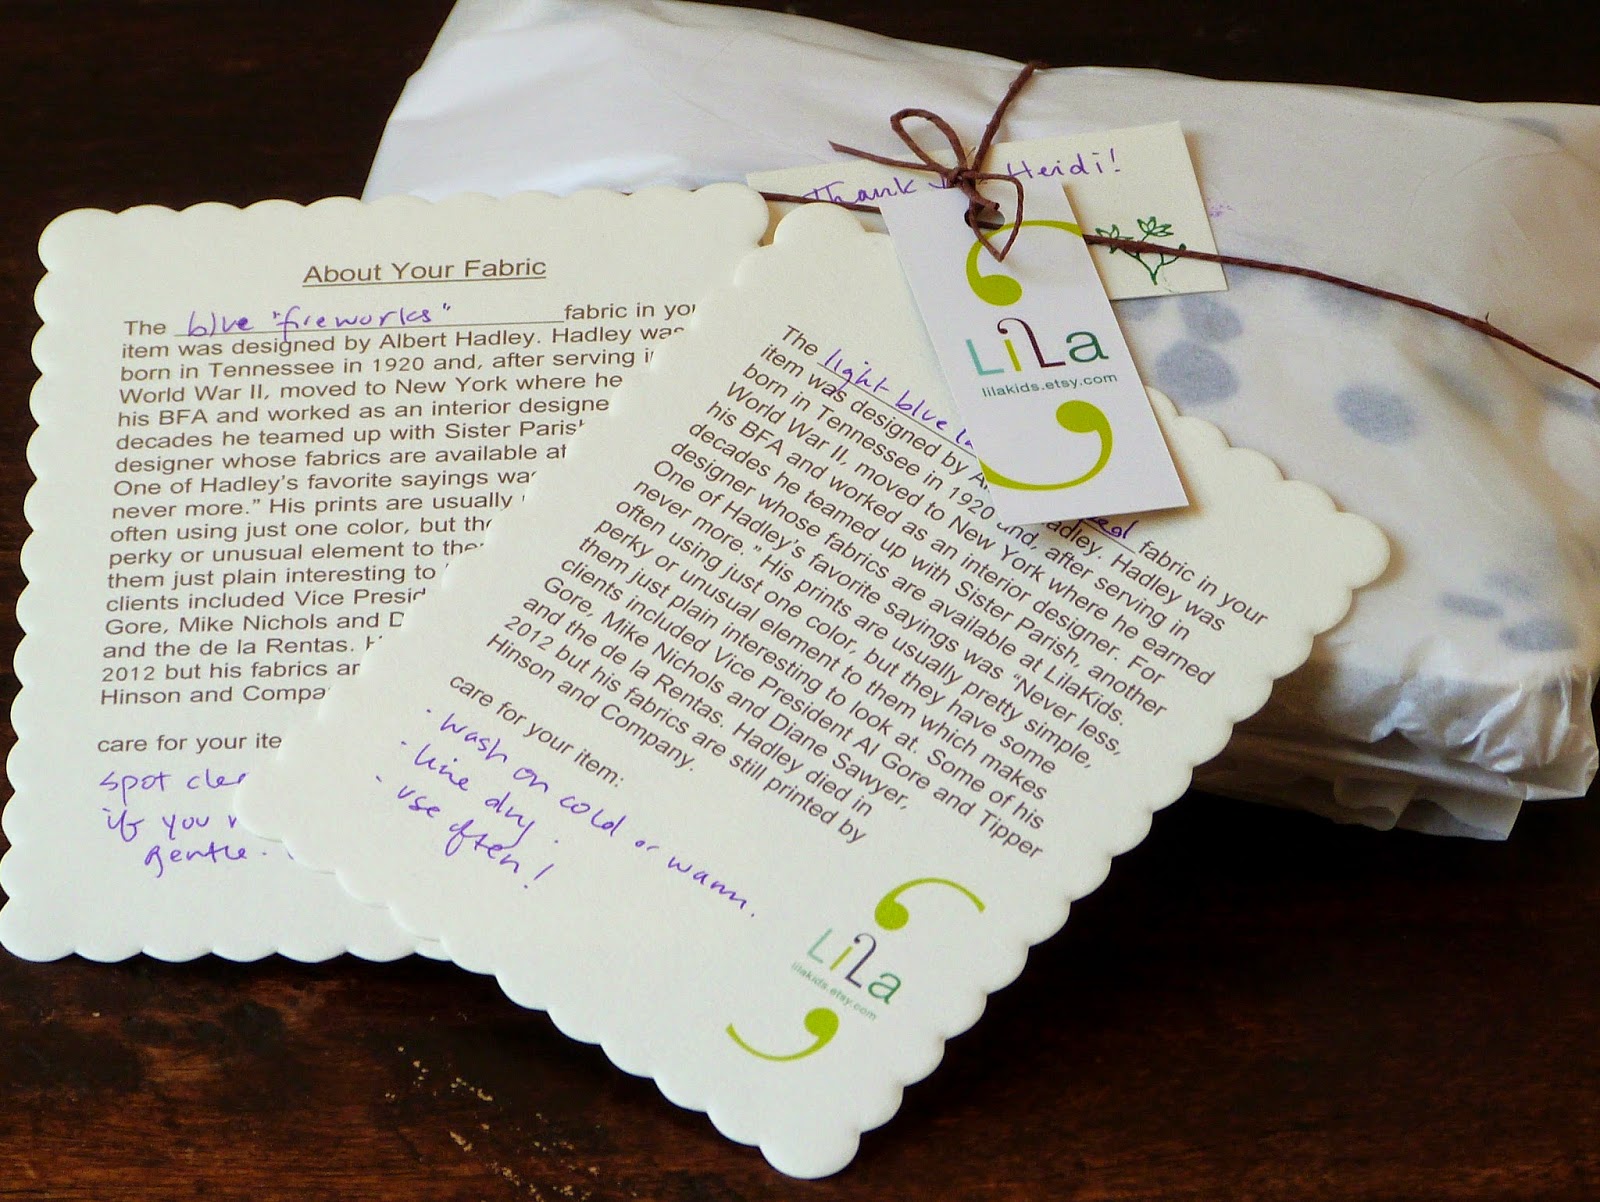 Thank Heidi!
LiLa
lilakids.etsy.com
About Your Fabric
The blue "fireworks" fabric in
item was designed by Albert Hadley. Hadley was
born in Tennessee in 1920 and, after serving
World War II, moved to New York where he
his BFA and worked as an interior
decades he teamed up with Sister
designer whose fabrics are available at
One of Hadley's favorite sayings
never more." His prints are usually
often using just one color, but
perky or unusual element to
them just plain interesting to
clients included Vice
Gore, Mike Nichols and
and the de la Rentas.
2012 but his fabrics
Hinson and
care for your
spot
if you
gentle.
The light blue fabric in your
item was designed by Hadley. Hadley was
born in Tennessee in 1920 and, after serving in
World War II, moved to New York where he earned
his BFA and worked as an interior designer. For
decades he teamed up with Sister Parish, another
designer whose fabrics are available at LilaKids.
One of Hadley's favorite sayings was "Never less,
never more." His prints are usually pretty simple,
often using just one color, but they have some
perky or unusual element to them which makes
them just plain interesting to look at. Some of his
clients included Vice President Al Gore and Tipper
Gore, Mike Nichols and Diane Sawyer,
and the de la Rentas. Hadley died in
2012 but his fabrics are still printed by
Hinson and Company.
care for your item:
· wash on cold or warm.
· line dry.
· use often!
LiLa
lilakids.etsy.com